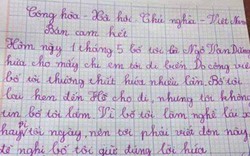 Cộng hòa - Xã hội. Chủ nghĩa - Việt Nam
Bản cam kết
Hôm nay 1 tháng 5 bố tôi là Ngô Văn Dũng
hứa cho mấy chị em tôi đi biển Do công việc
bố tôi thường thất hứa nhiều lần. Bố tôi
lại hẹn đến Hè cho đi, nhưng tôi không
tin bố tôi lắm Vì bố tôi làm nghề lái xe
hay tối ngày, nên tôi phải viết đơn này
đề nghị bố tôi giữ đúng lời hứa